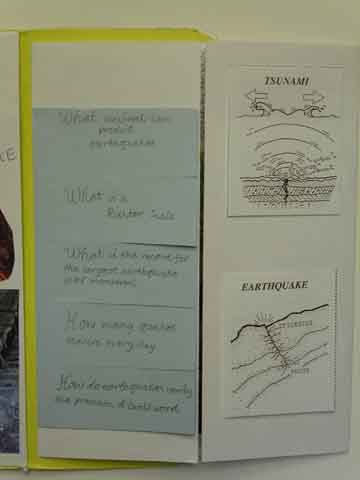 What animal can
predict
earthquakes
What is a
Richter Scale
What is the record for
the largest earthquake
ever measured
How many quakes
occur every day
How do earthquakes verify
the of God's word
TSUNAMI
EARTHQUAKE
EPICENTER
FOCUS
KE